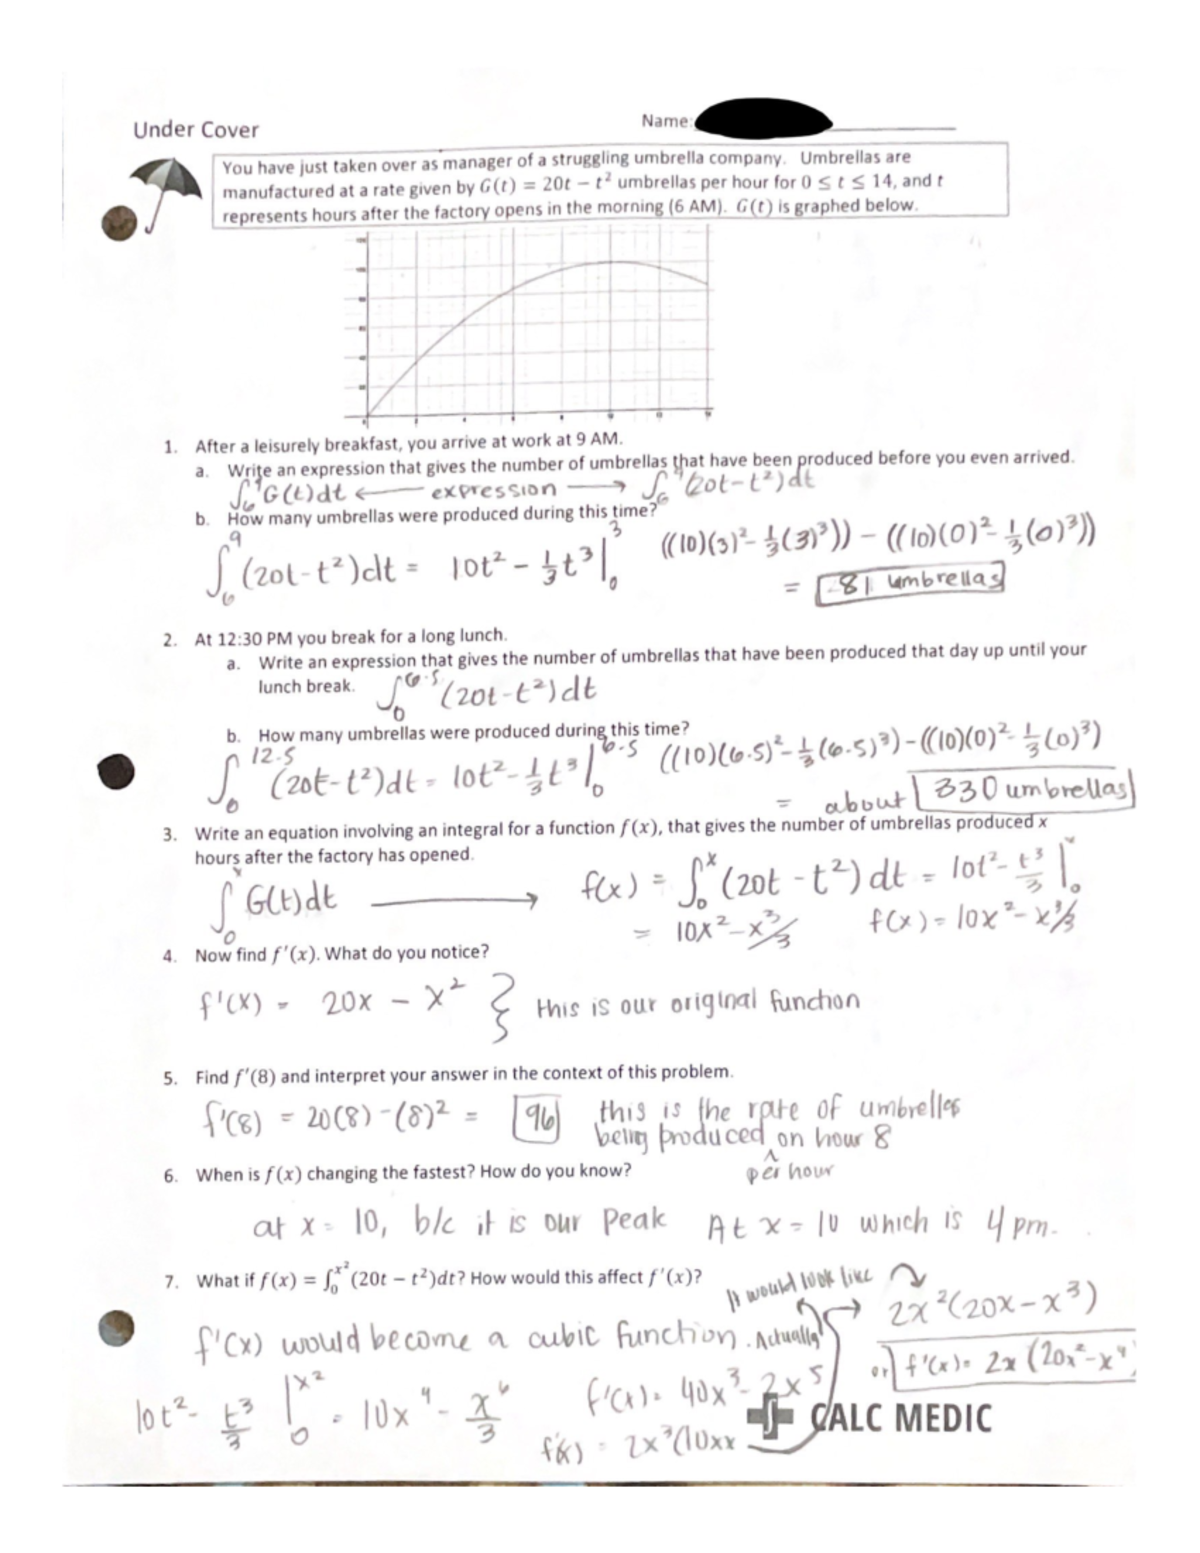 Under Cover
Name:
You have just taken over as manager of a struggling umbrella company. Umbrellas are
manufactured at a rate given by G(t) = 20t − t² umbrellas per hour for 0 ≤ t ≤ 14, and t
represents hours after the factory opens in the morning (6 AM). G(t) is graphed below.
1. After a leisurely breakfast, you arrive at work at 9 AM.
a. Write an expression that gives the number of umbrellas that have been produced before you even arrived.
∫₆⁹ G(t)dt ← expression → ∫₆⁹ (20t−t²)dt
b. How many umbrellas were produced during this time?
∫₆⁹ (20t−t²)dt = 10t² − 1/3 t³ |₀³ ((10)(3)² − 1/3(3)³)) − ((10)(0)² − 1/3(0)³))
= 81 umbrellas
2. At 12:30 PM you break for a long lunch.
a. Write an expression that gives the number of umbrellas that have been produced that day up until your
lunch break. ∫₀^6.5 (20t−t²)dt
b. How many umbrellas were produced during this time?
∫₀^12.5 (20t−t²)dt = 10t² − 1/3 t³ |₀^6.5 ((10)(6.5)² − 1/3(6.5)³) − ((10)(0)² − 1/3(0)³)
= about 330 umbrellas
3. Write an equation involving an integral for a function f(x), that gives the number of umbrellas produced x
hours after the factory has opened.
∫₀ˣ G(t)dt → f(x) = ∫₀ˣ (20t − t²) dt = 10t² − t³/3 |₀ˣ
= 10x² − x³/3 f(x) = 10x² − x³/3
4. Now find f′(x). What do you notice?
f'(x) = 20x − x² } this is our original function
5. Find f′(8) and interpret your answer in the context of this problem.
f'(8) = 20(8) − (8)² = 96 this is the rate of umbrellas
being produced on hour 8
per hour
6. When is f(x) changing the fastest? How do you know?
at x = 10, b/c it is our peak At x = 10 which is 4 pm.
7. What if f(x) = ∫₀^x² (20t − t²)dt? How would this affect f′(x)?
It would look like
2x²(20x − x³)
f'(x) would become a cubic function. Actually
or f'(x) = 2x(20x² − x⁴)
10t² − t³/3 |₀^x² = 10x⁴ − x⁶/3 f'(x) = 40x³ − 2x⁵
CALC MEDIC
f'(x) = 2x³(10xx